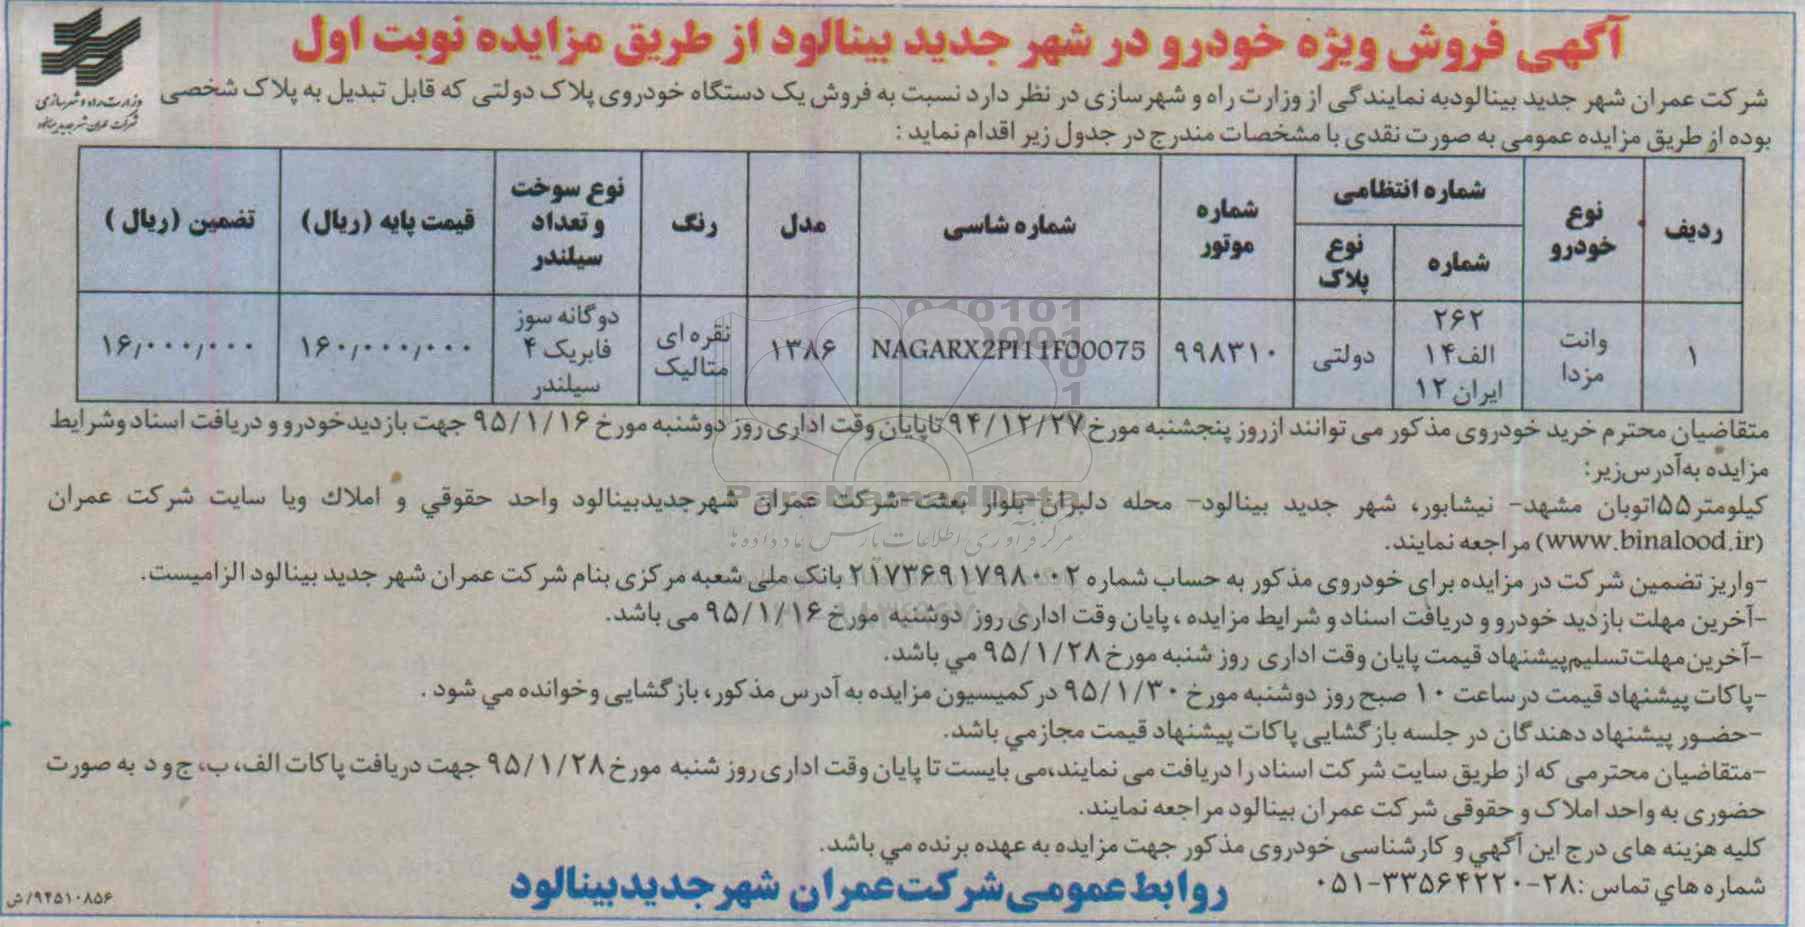 آگهی فروش ویژه خودرو در شهر جدید بینالود از طریق مزایده نوبت اول
وزارت راه و شهرسازی
شرکت عمران شهر جدید بینالود
شرکت عمران شهر جدید بینالودبه نمایندگی از وزارت راه و شهرسازی در نظر دارد نسبت به فروش یک دستگاه خودروی پلاک دولتی که قابل تبدیل به پلاک شخصی
بوده از طریق مزایده عمومی به صورت نقدی با مشخصات مندرج در جدول زیر اقدام نماید :
ردیف | نوع خودرو | شماره انتظامی | شماره موتور | شماره شاسی | مدل | رنگ | نوع سوخت و تعداد سیلندر | قیمت پایه (ریال) | تضمین (ریال )
شماره | نوع پلاک
۱ | وانت مزدا | ۲۶۲ الف۱۴ ایران ۱۲ | دولتی | ۹۹۸۳۱۰ | NAGARX2PI11F00075 | ۱۳۸۶ | نقره ای متالیک | دوگانه سوز فابریک ۴ سیلندر | ۱۶۰/۰۰۰/۰۰۰ | ۱۶/۰۰۰/۰۰۰
متقاضیان محترم خرید خودروی مذکور می توانند ازروز پنجشنبه مورخ ۹۴/۱۲/۲۷ تاپایان وقت اداری روز دوشنبه مورخ ۹۵/۱/۱۶ جهت بازدیدخودرو و دریافت اسناد وشرایط
مزایده به‌آدرس‌زیر:
کیلومتر۵۵اتوبان مشهد- نیشابور، شهر جدید بینالود- محله دلبران-بلوار بعثت-شرکت عمران شهرجدیدبینالود واحد حقوقي و املاك ویا سایت شرکت عمران
(www.binalood.ir) مراجعه نمایند.
-واریز تضمین شرکت در مزایده برای خودروی مذکور به حساب شماره ۲۱۷۳۶۹۱۷۹۸۰۰۲ بانک ملی شعبه مرکزی بنام شرکت عمران شهر جدید بینالود الزامیست.
-آخرین مهلت بازدید خودرو و دریافت اسناد و شرایط مزایده ، پایان وقت اداری روز دوشنبه مورخ ۹۵/۱/۱۶ می باشد.
-آخرین‌مهلت‌تسلیم‌پیشنهاد قیمت پایان وقت اداری روز شنبه مورخ ۹۵/۱/۲۸ مي باشد.
-پاکات پیشنهاد قیمت درساعت ۱۰ صبح روز دوشنبه مورخ ۹۵/۱/۳۰ در کمیسیون مزایده به آدرس مذکور، بازگشایی وخوانده مي شود .
-حضور پیشنهاد دهندگان در جلسه بازگشایی پاکات پیشنهاد قیمت مجازمي باشد.
-متقاضیان محترمی که از طریق سایت شرکت اسناد را دریافت می نمایند،می بایست تا پایان وقت اداری روز شنبه مورخ ۹۵/۱/۲۸ جهت دریافت پاکات الف، ب، ج و د به صورت
حضوری به واحد املاک و حقوقی شرکت عمران بینالود مراجعه نمایند.
کلیه هزینه های درج این آگهي و کارشناسی خودروی مذکور جهت مزایده به عهده برنده مي باشد.
شماره هاي تماس :۲۸-۳۳۵۶۴۲۲۰-۰۵۱
روابط عمومی شرکت عمران شهر جدید بینالود
۹۴۵۱۰۸۵۶/ش
ParsNamadData
مرکز فرآوری اطلاعات پارس نماد داده ها